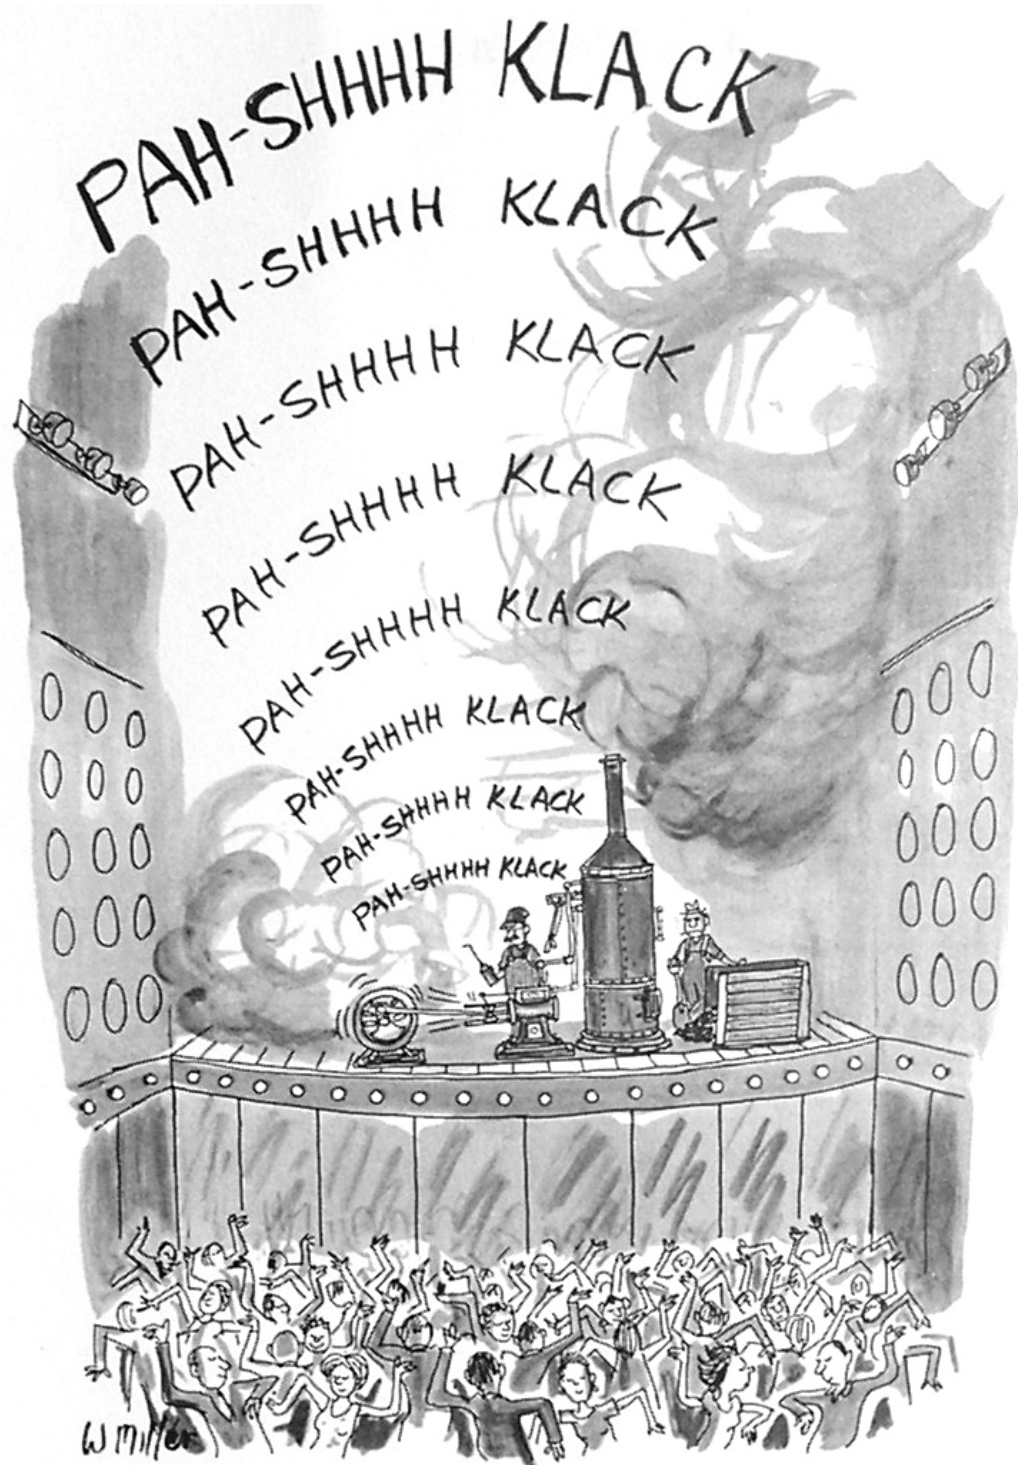 PAH-SHHHH KLACK
PAH-SHHHH KLACK
PAH-SHHHH KLACK
PAH-SHHHH KLACK
PAH-SHHHH KLACK
PAH-SHHHH KLACK
PAH-SHHHH KLACK
PAH-SHHHH KLACK
W Miller